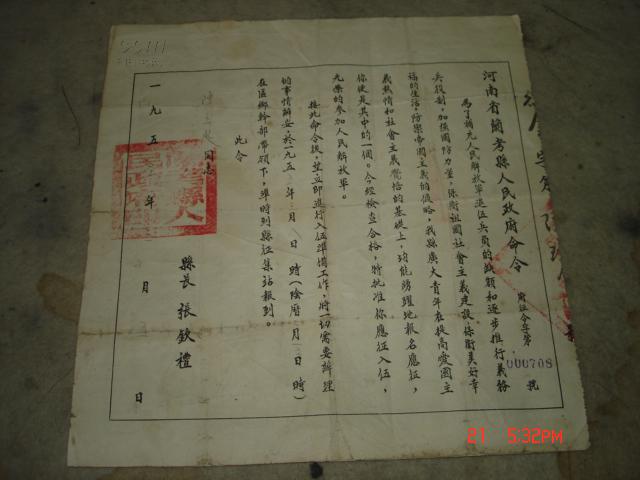 河南省蘭考縣人民政府命令
府征令字第
000708
號
為了補充人民解放軍退伍兵員的缺額和逐步推行義務
兵役制，加强國防力量，保衛祖國社會主義建設，保衛美好幸
福的生活，防禦帝國主義的侵略，我縣廣大青年在提高愛國主
義熱情和社會主義覺悟的基礎上，均能踴躍地報名應征，
你便是其中的一個。今經檢查合格，特批准你應征入伍，
光榮的參加人民解放軍。
接此命令後，望立即進行入伍準備工作，將一切需要辦理
的事情辦妥，於一九五 年 月 日 時（陰曆 月 日 時）
在區鄉幹部帶領下，準時到縣征集站報到。
此令
同志
縣長 張欽禮
一九五 年 月 日
21 5:32PM